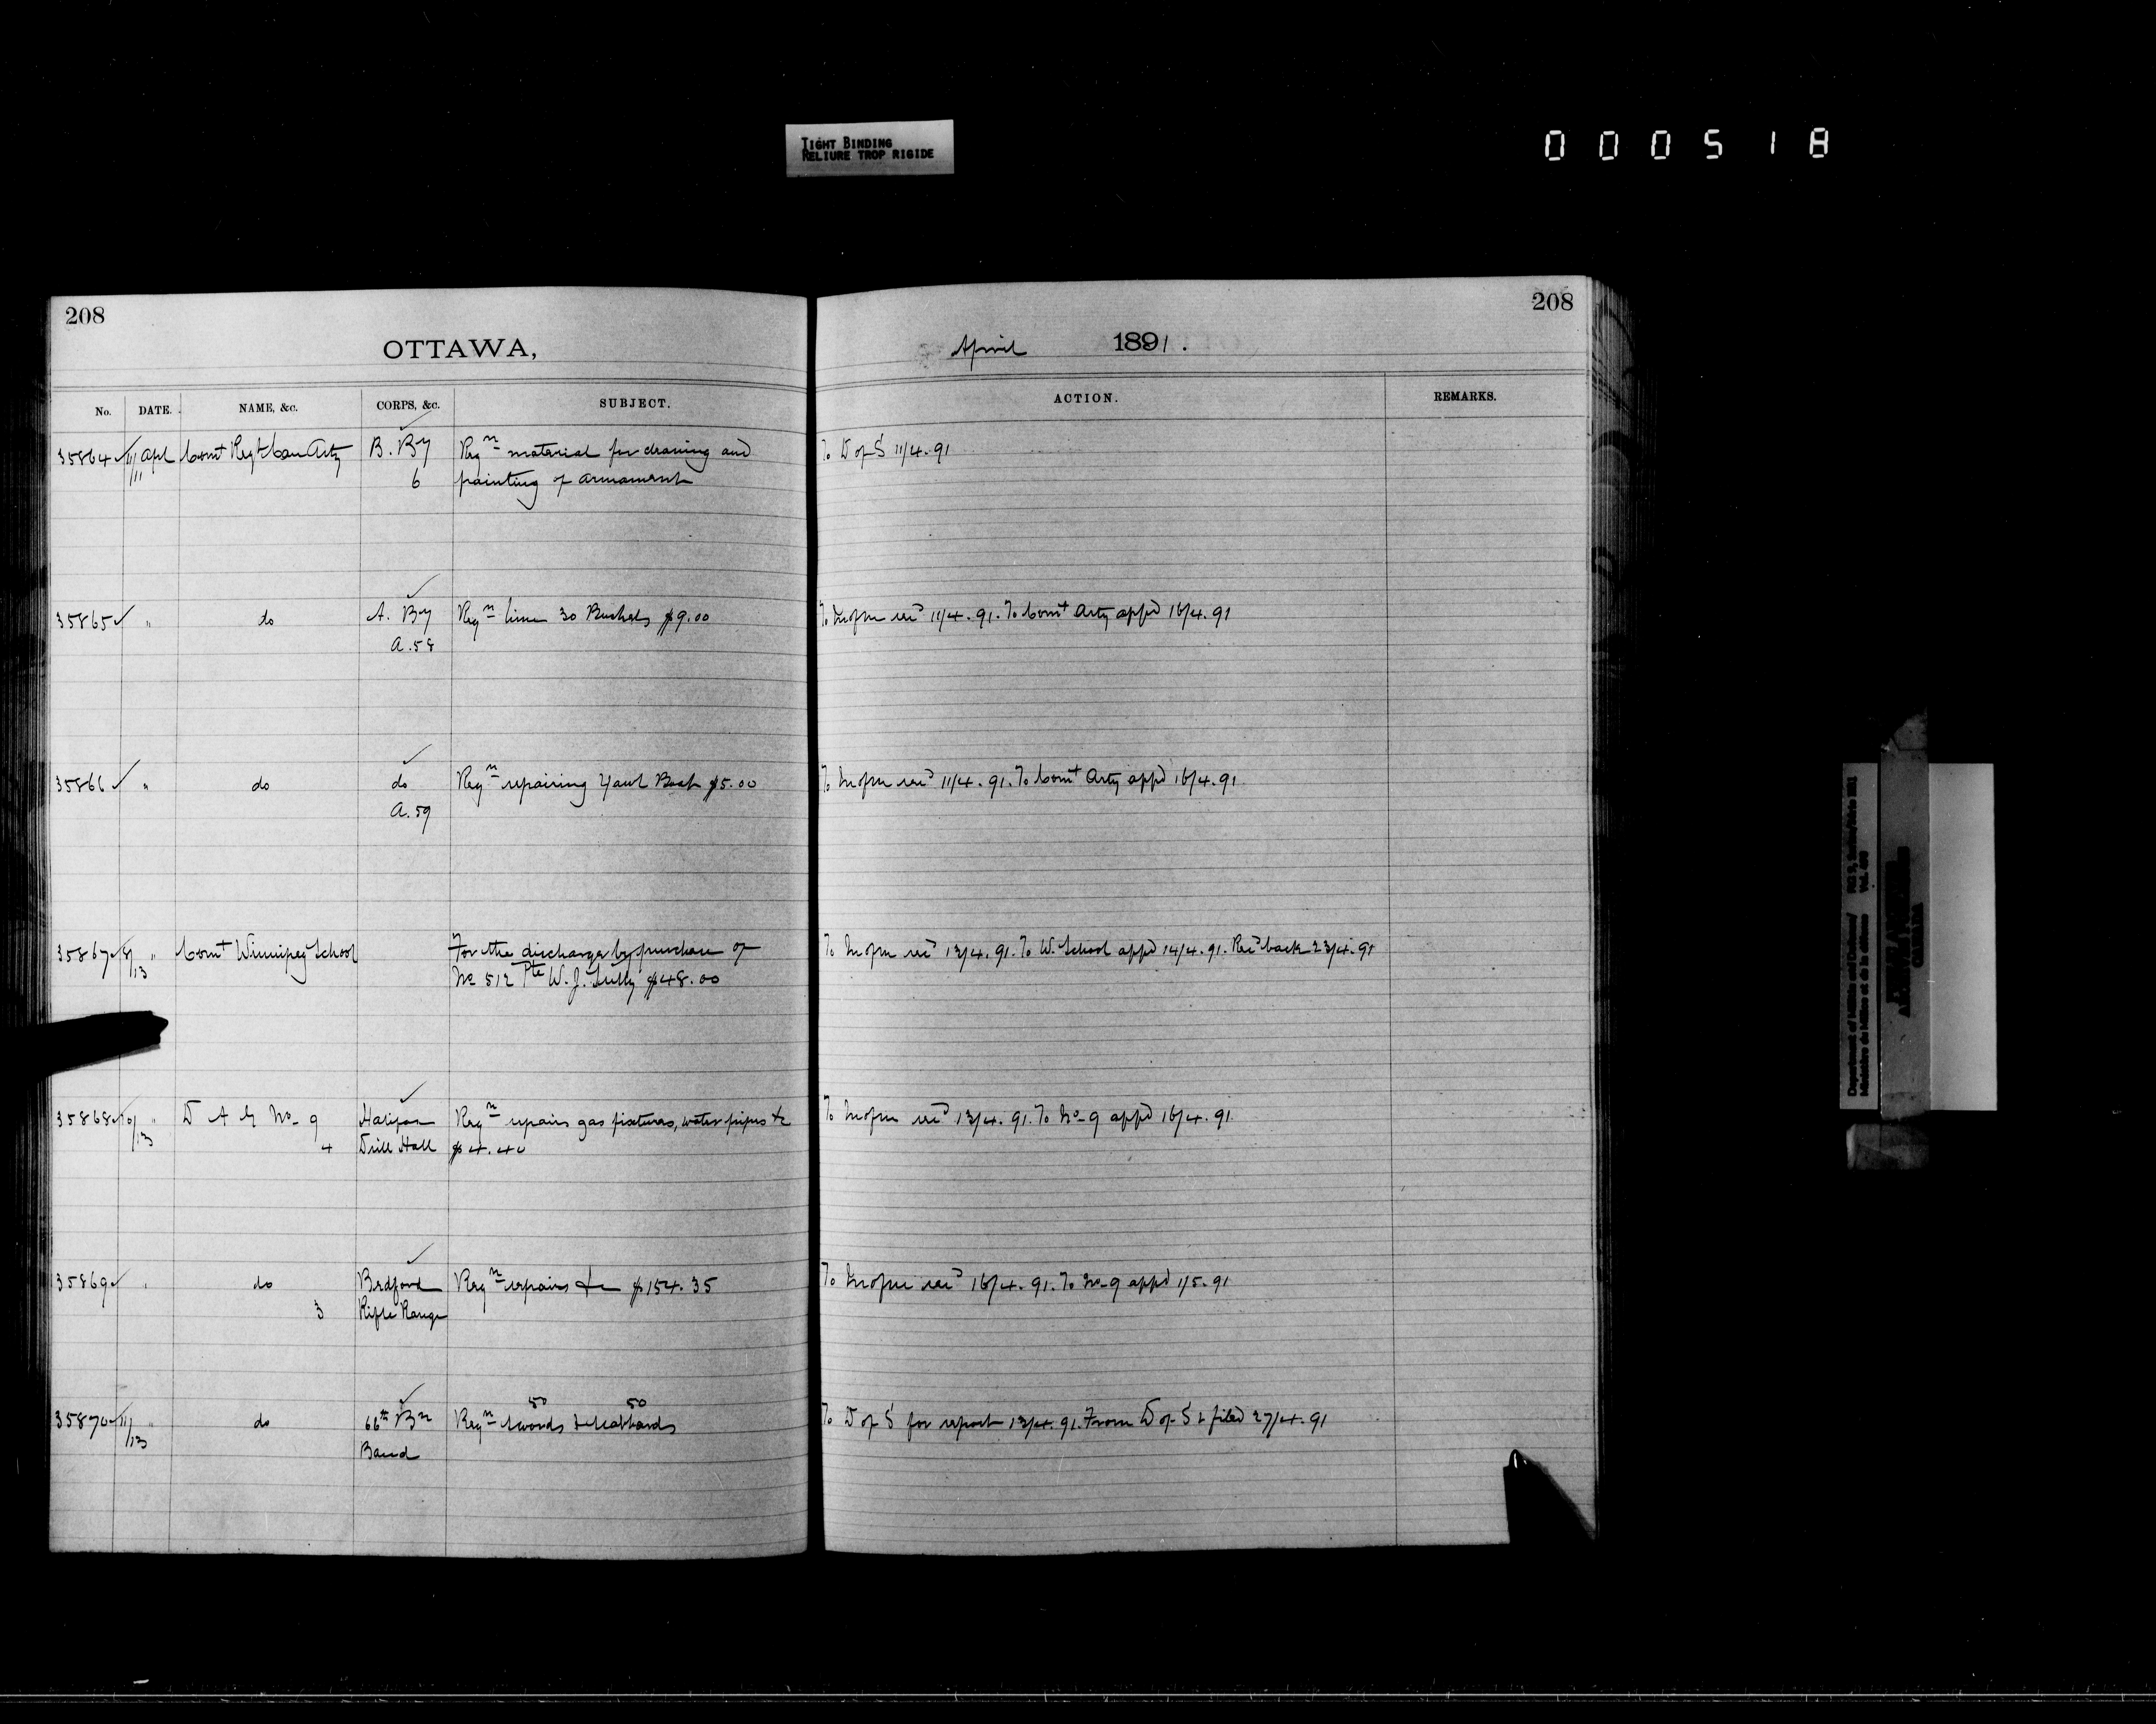 TIGHT BINDING
RELIURE TROP RIGIDE
000518
208
208
OTTAWA,
April 1891.
No. DATE. NAME, &c. CORPS, &c. SUBJECT. ACTION. REMARKS.
35864 11/11 Apl Comt Regt Can Arty B. By Reqn material for cleaning and To D of S 11/4.91
6 painting of armament
35865 " do A. By Reqn lime 30 Bushels $9.00 To M of m recd 11/4.91. To Comt Arty appd 16/4.91
A.58
35866 " do do Reqn repairing Yawl Boat $5.00 To M of m recd 11/4.91. To Comt Arty appd 16/4.91
A.59
35867 /13 " Comt Winnipeg School For the discharge by purchase of To M of m recd 13/4.91. To W. School appd 14/4.91. Recd back 23/4.91
No 512 Pte W. J. Tully $48.00
35868 10/13 " D A G No 9 Halifax Reqn repairs gas fixtures, water pipes &c To M of m recd 13/4.91. To No 9 appd 16/4.91
4 Drill Hall $4.40
35869 " do Bedford Reqn repairs &c $154.35 To M of m recd 16/4.91. To No 9 appd 1/5.91
3 Rifle Range
50 50
35870 11/13 " do 66th Bn Reqn swords & scabbards To D of S for report 13/4.91. From D of S & filed 27/4.91
Band
Department of Militia and Defence/
Ministère de Milice et de la défense